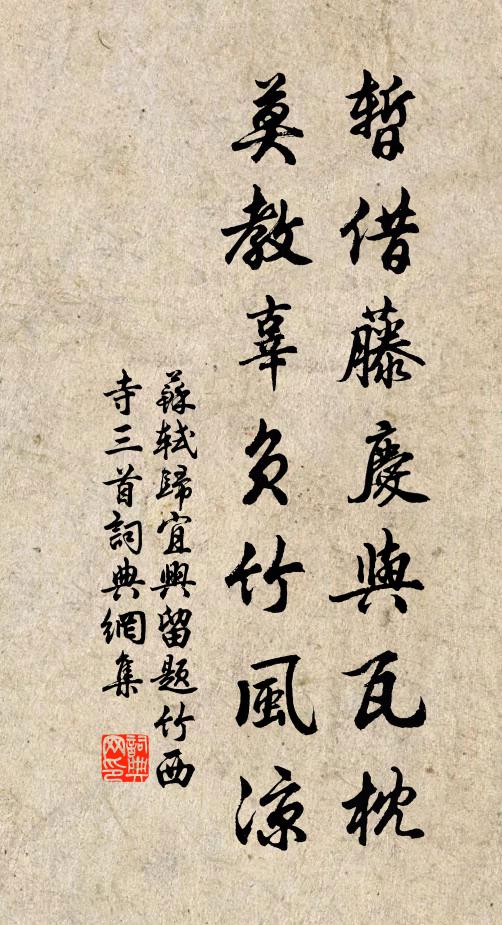 暫借藤慶與瓦枕
莫教辜負竹風涼
蘇軾歸宜興留題竹西
寺三首詞典網集
詞典
网印